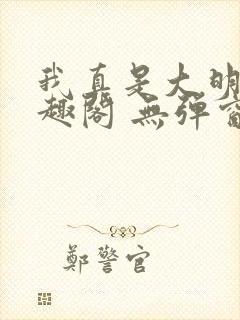 我真是大明
趣閣 無彈窗
鄭警官